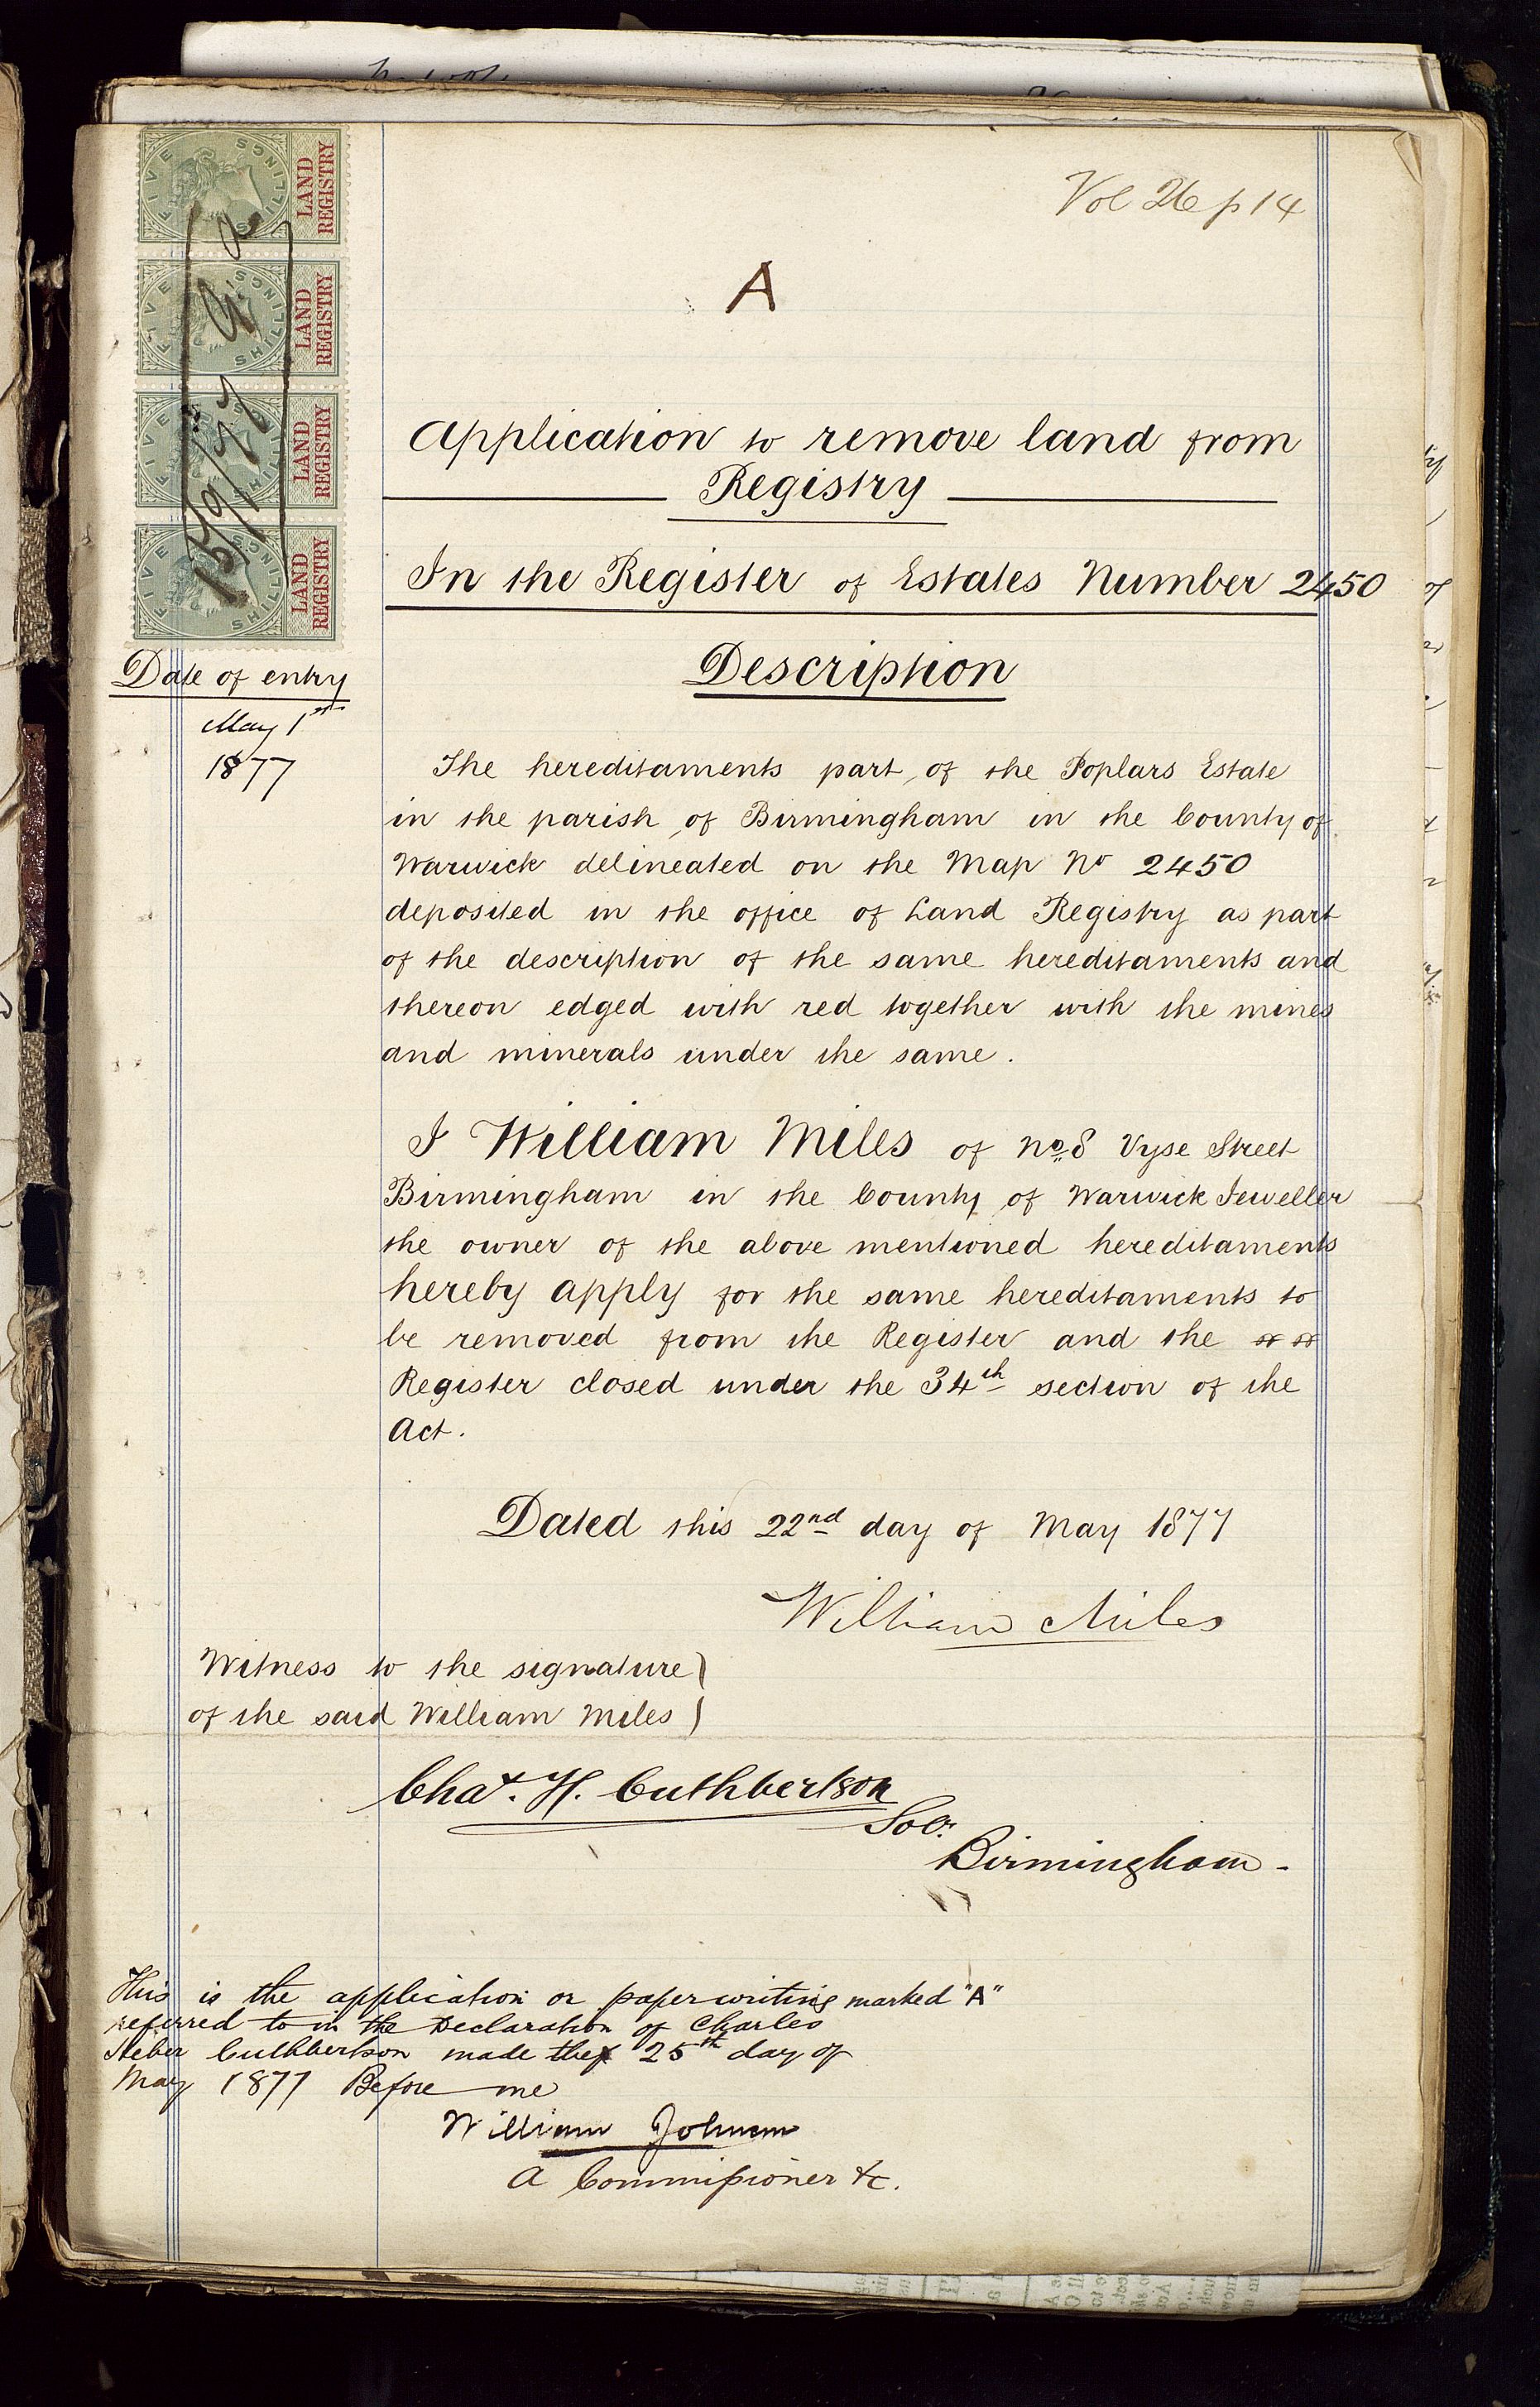 Vol 26 p 14
A
LAND REGISTRY
FIVE SHILLINGS
LAND REGISTRY
FIVE SHILLINGS
LAND REGISTRY
FIVE SHILLINGS
LAND REGISTRY
FIVE SHILLINGS
Application to remove land from
Registry
In the Register of Estates Number 2450
Description
Date of entry
May 1st
1877
The hereditaments part of the Poplars Estate
in the parish of Birmingham in the County of
Warwick delineated on the Map No 2450
deposited in the office of Land Registry as part
of the description of the same hereditaments and
thereon edged with red together with the mines
and minerals under the same.
I William Miles of No. 8 Vyse Street
Birmingham in the County of Warwick Jeweller
the owner of the above mentioned hereditaments
hereby apply for the same hereditaments to
be removed from the Register and the
Register closed under the 34th section of the
Act.
Dated this 22nd day of May 1877
William Miles
Witness to the signature
of the said William Miles
Chas. H. Cuthbertson
Solr.
Birmingham -
This is the application or paperwriting marked "A"
referred to in the Declaration of Charles
Heber Cuthbertson made the 25th day of
May 1877 Before me
William Johnson
A Commissioner &c.